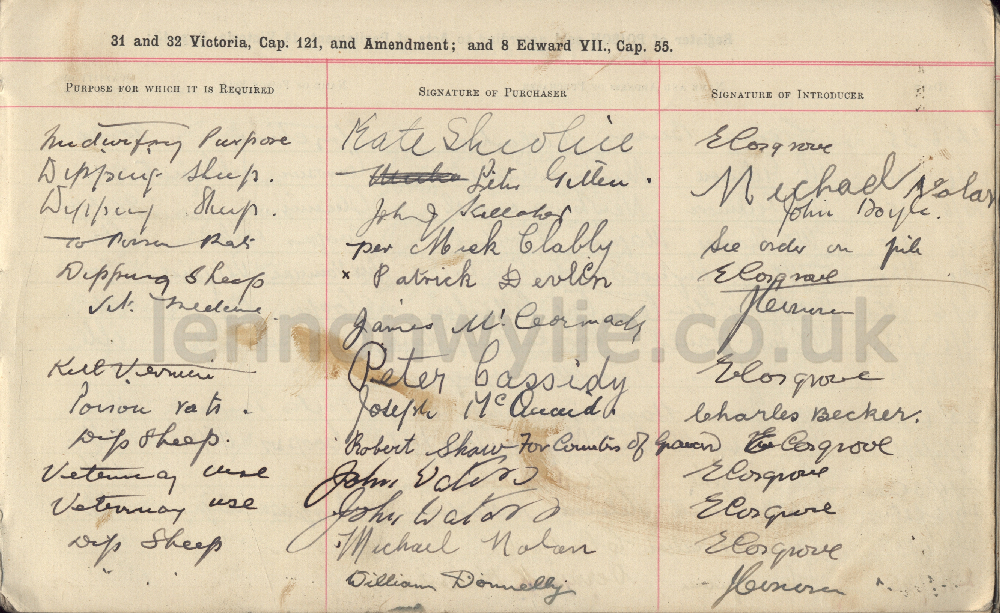 31 and 32 Victoria, Cap. 121, and Amendment; and 8 Edward VII., Cap. 55.
PURPOSE FOR WHICH IT IS REQUIRED SIGNATURE OF PURCHASER SIGNATURE OF INTRODUCER
Midwifery Purpose Kate ECosgrove
Dipping Sheep. Michael Nolan
Dipping Sheep. John John Doyle.
To Poison Rats per Mick Clabby See order on file
Dipping Sheep x Patrick Devlin ECosgrove
Vet. Medicine
James McCormack
lennonwylie.co.uk
Kill Vermin Peter Cassidy ECosgrove
Poison rats. Joseph McQuaid. Charles Becker.
Dip Sheep. Robert Shaw For Countess of ECosgrove
Veterinary use John Waters ECosgrove
Veterinary use John Waters ECosgrove
Dip Sheep Michael Nolan ECosgrove
William Donnelly